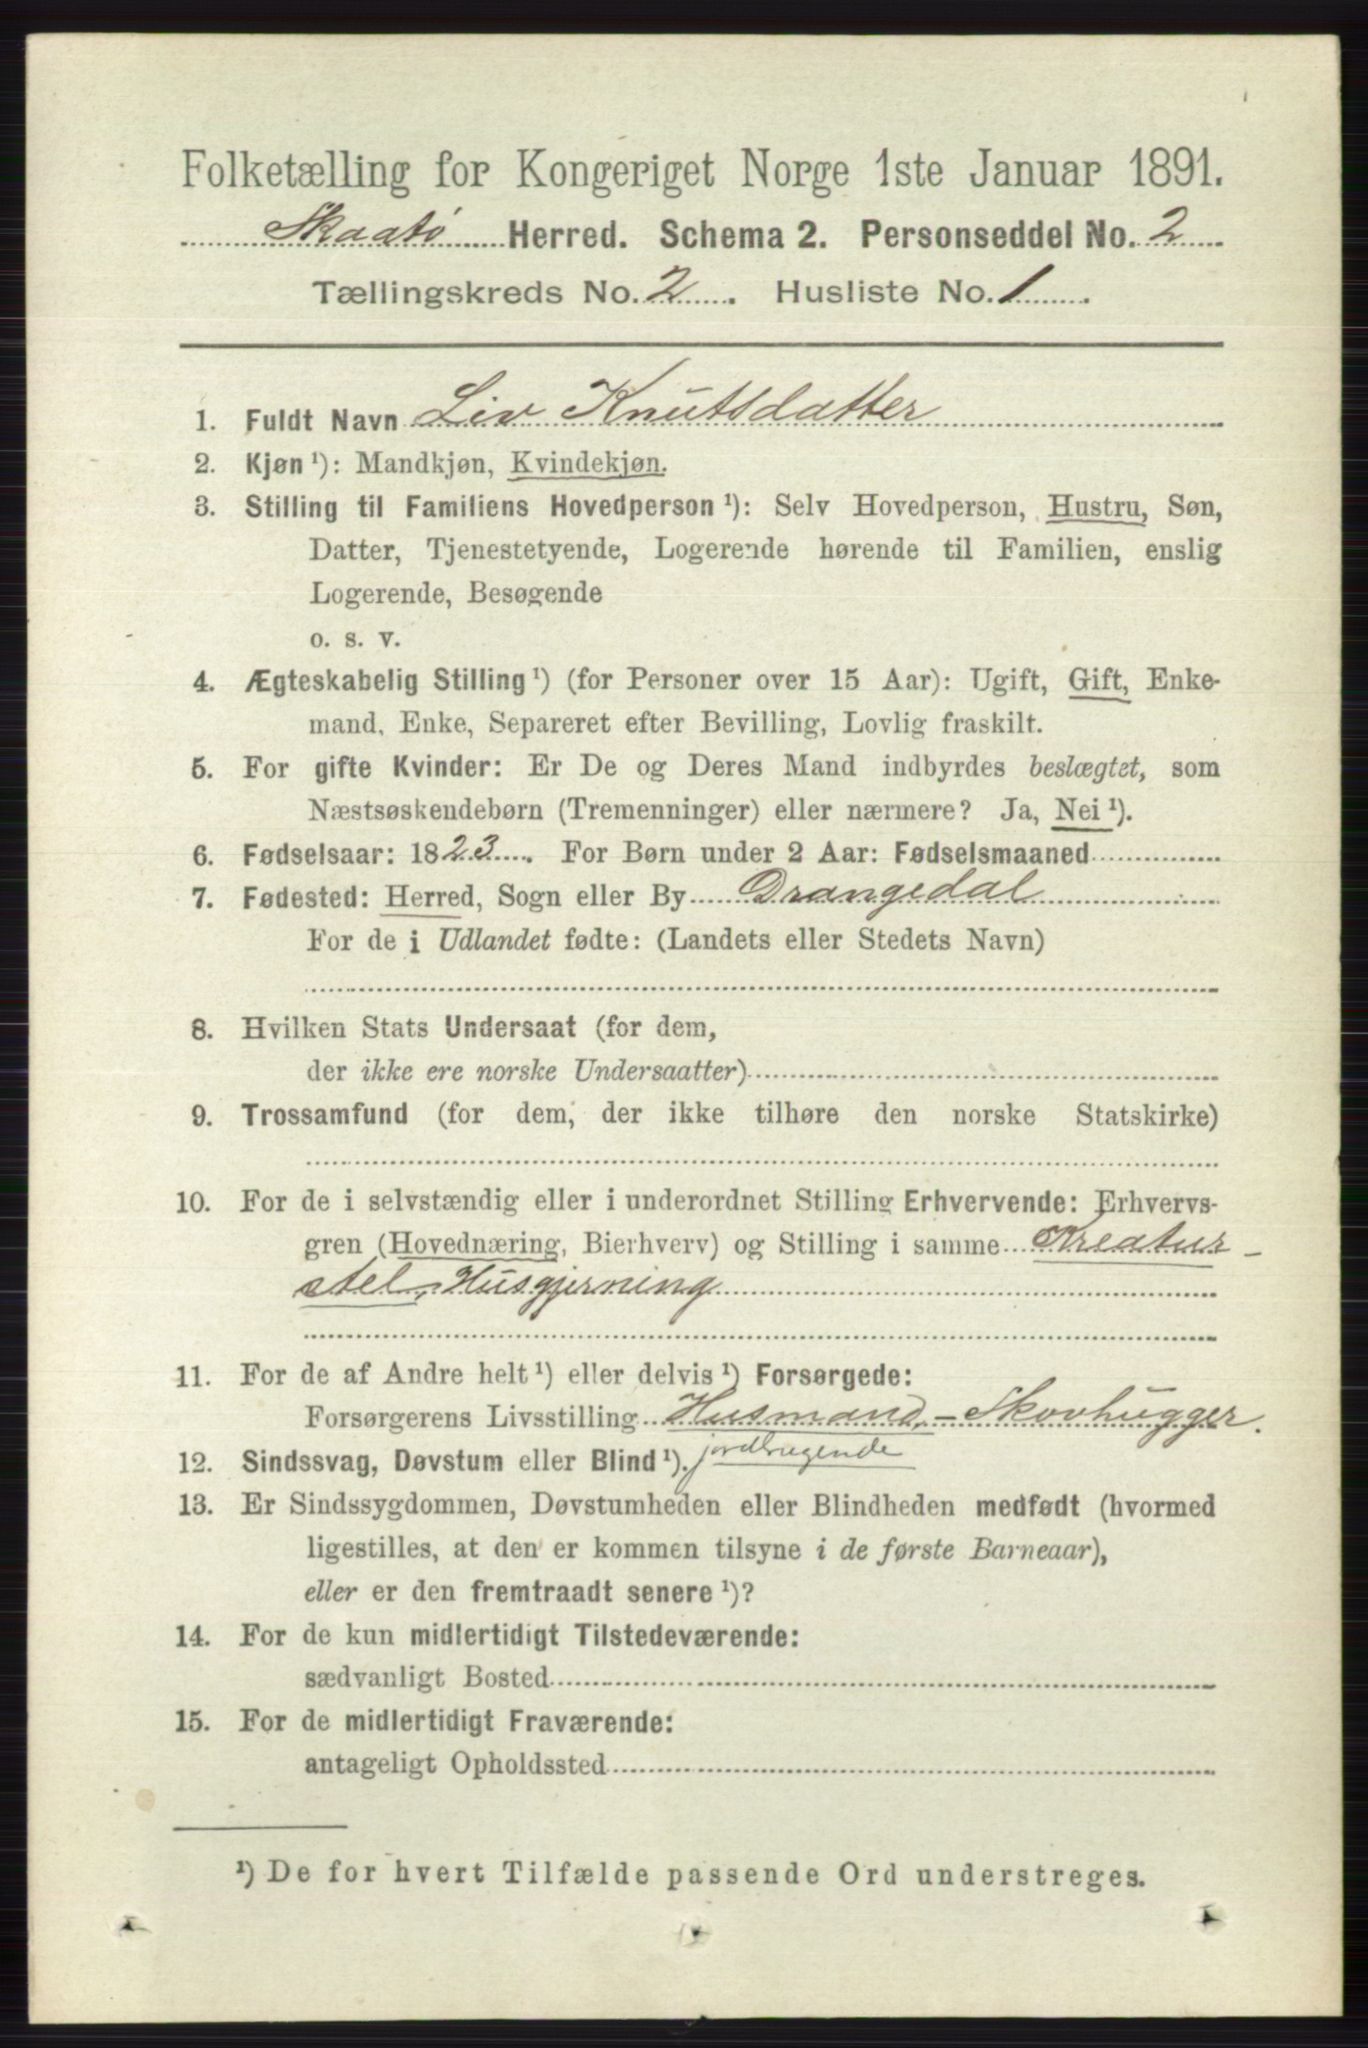 Folketælling for Kongeriget Norge 1ste Januar 1891.
Skaatø Herred. Schema 2. Personseddel No. 2
Tællingskreds No. 2. Husliste No. 1.
1. Fuldt Navn Liv Knutsdatter
2. Kjøn ¹): Mandkjøn, Kvindekjøn.
3. Stilling til Familiens Hovedperson ¹): Selv Hovedperson, Hustru, Søn,
Datter, Tjenestetyende, Logerende hørende til Familien, enslig
Logerende, Besøgende
o. s. v.
4. Ægteskabelig Stilling ¹) (for Personer over 15 Aar): Ugift, Gift, Enke-
mand, Enke, Separeret efter Bevilling, Lovlig fraskilt.
5. For gifte Kvinder: Er De og Deres Mand indbyrdes beslægtet, som
Næstsøskendebørn (Tremenninger) eller nærmere? Ja, Nei ¹).
6. Fødselsaar: 1823. For Børn under 2 Aar: Fødselsmaaned
7. Fødested: Herred, Sogn eller By Drangedal
For de i Udlandet fødte: (Landets eller Stedets Navn)
8. Hvilken Stats Undersaat (for dem,
der ikke ere norske Undersaatter)
9. Trossamfund (for dem, der ikke tilhøre den norske Statskirke)
10. For de i selvstændig eller i underordnet Stilling Erhvervende: Erhvervs-
gren (Hovednæring, Bierhverv) og Stilling i samme Kreatur-
stel, Husgjerning
11. For de af Andre helt ¹) eller delvis ¹) Forsørgede:
Forsørgerens Livsstilling Husmand, - Skovhugger.
jordbrugende
12. Sindssvag, Døvstum eller Blind ¹).
13. Er Sindssygdommen, Døvstumheden eller Blindheden medfødt (hvormed
ligestilles, at den er kommen tilsyne i de første Barneaar),
eller er den fremtraadt senere ¹)?
14. For de kun midlertidigt Tilstedeværende:
sædvanligt Bosted
15. For de midlertidigt Fraværende:
antageligt Opholdssted
¹) De for hvert Tilfælde passende Ord understreges.